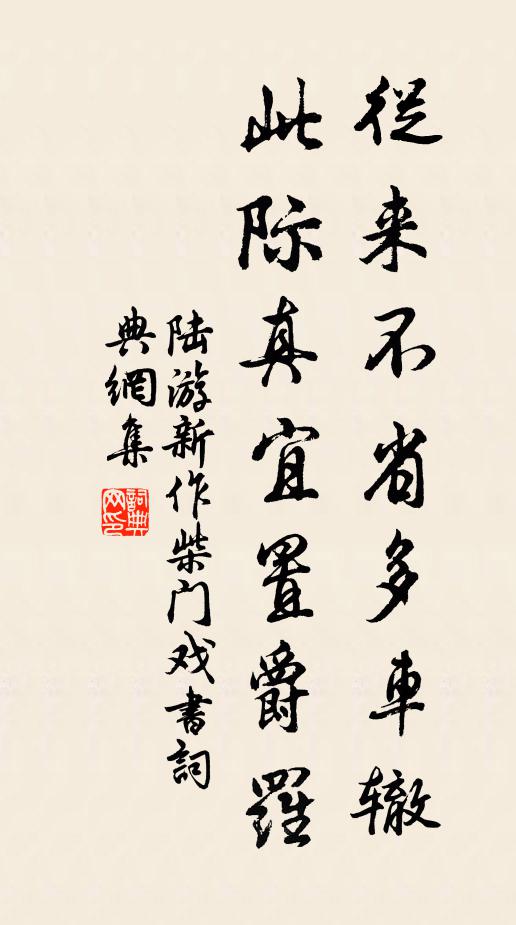 從来不省多車辙
此际真宜置爵羅
陆游新作柴门戏書詞
典網集
詞典网印